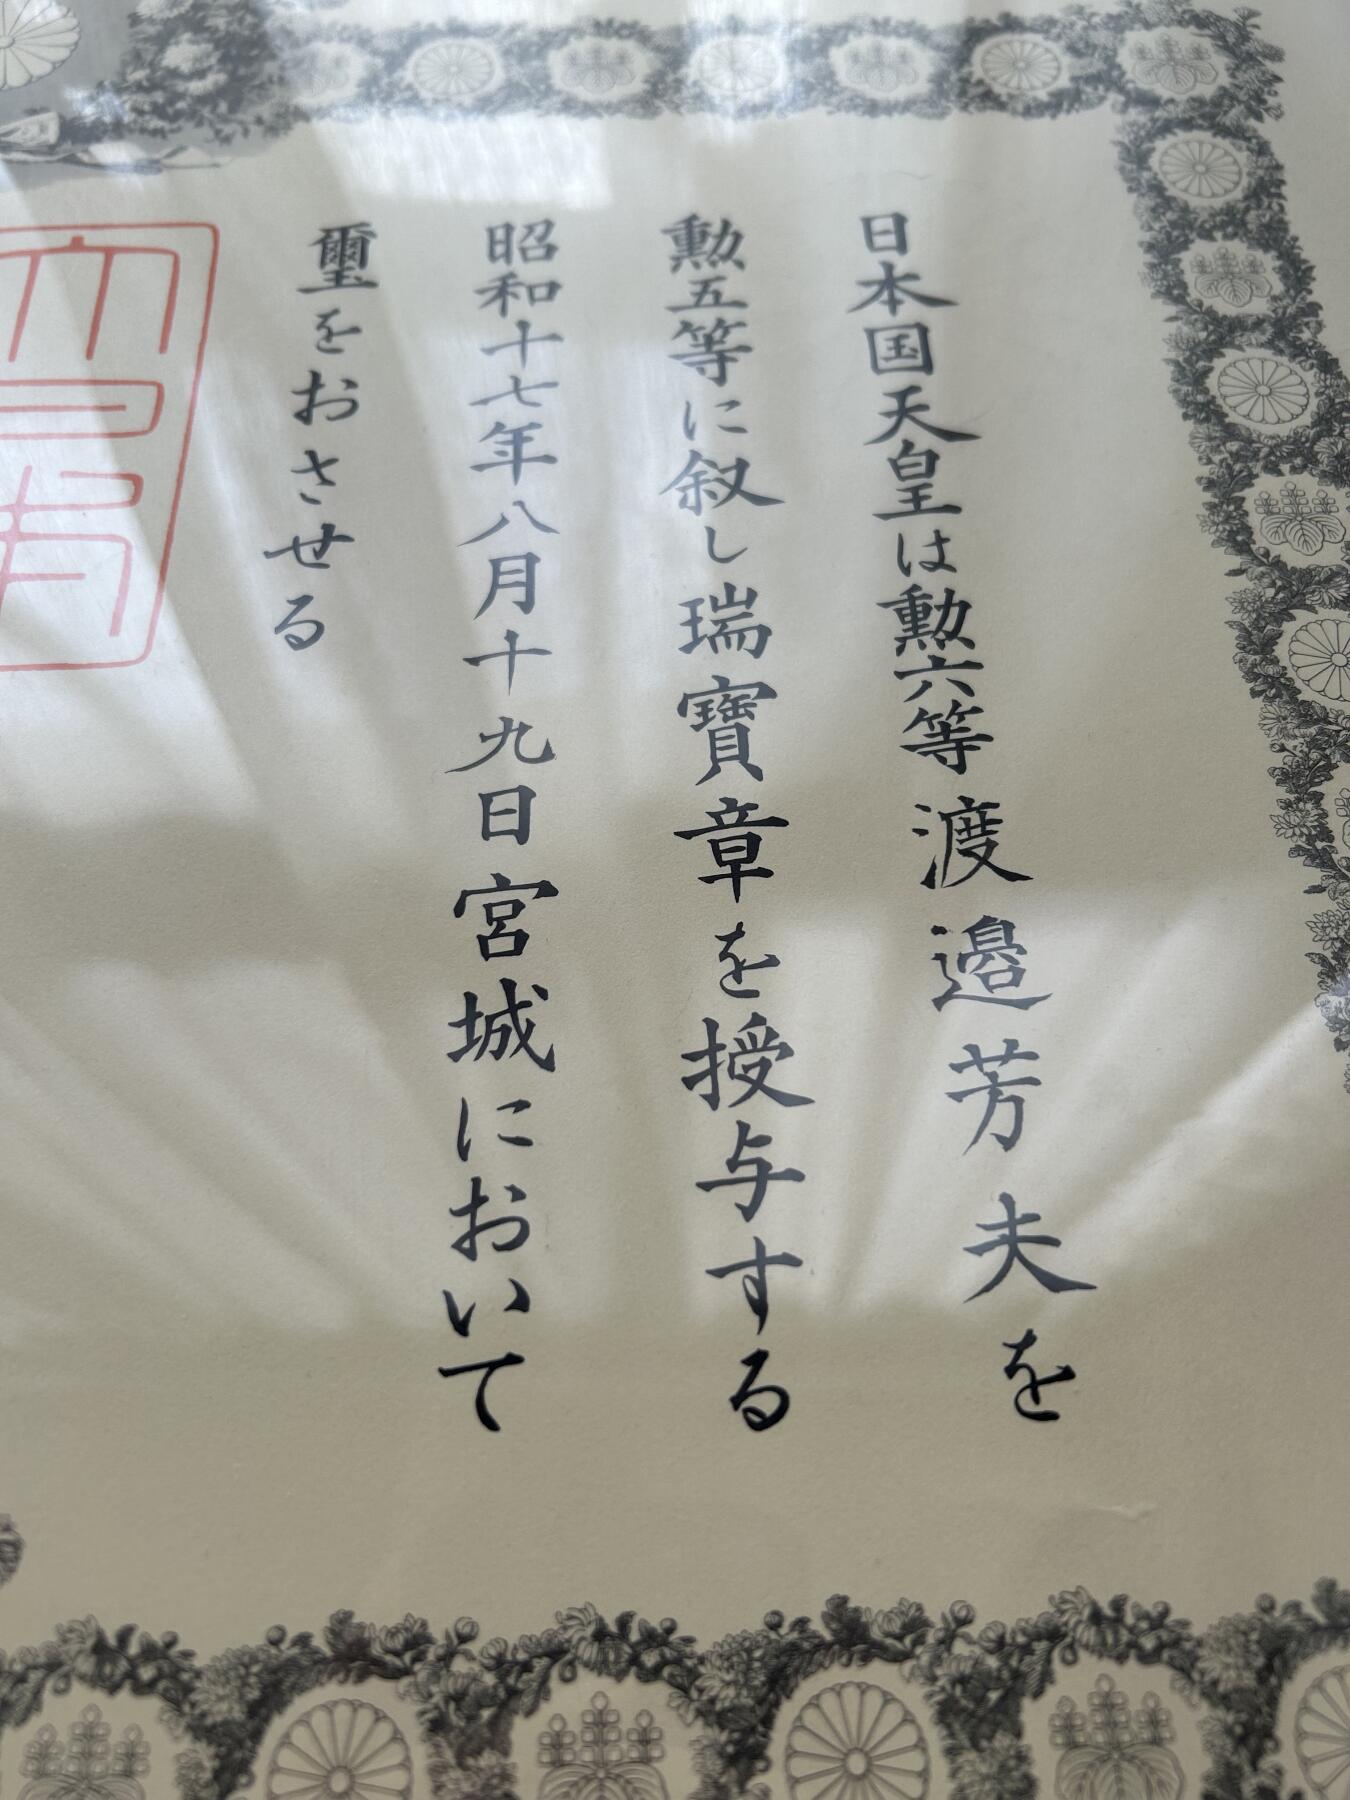 日本国天皇は勲六等渡邉芳夫を
勲五等に叙し瑞寶章を授与する
昭和十七年八月十九日宮城において
璽をおさせる